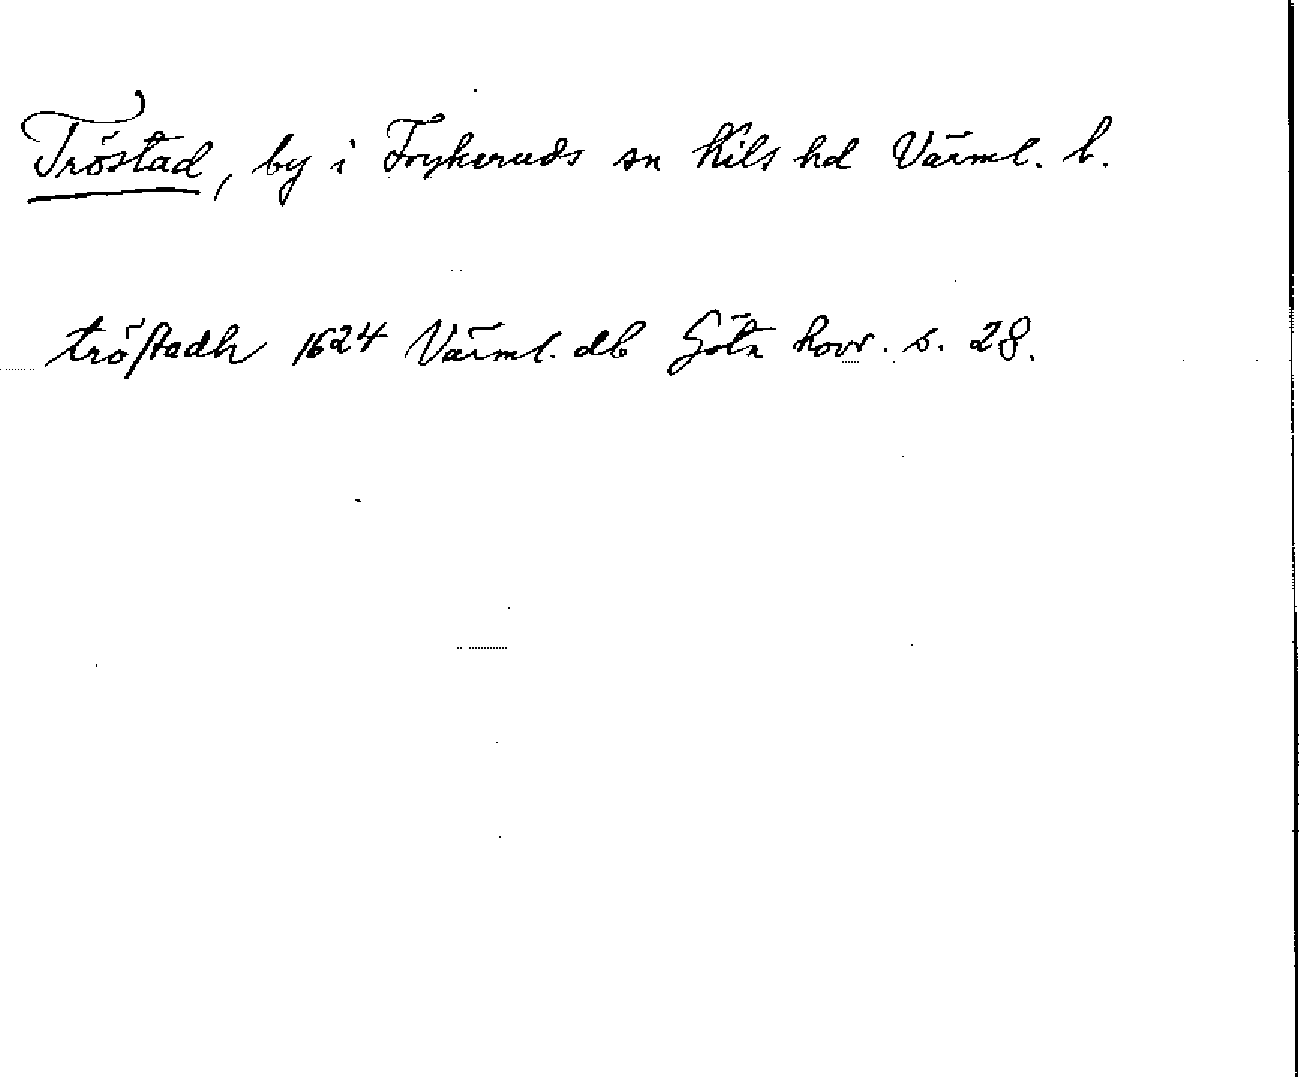 Tröstad, by i Frykeruds sn Kils hd Värml. l.
tröstadh 1624 Värml. db Göta hovr. s. 28.